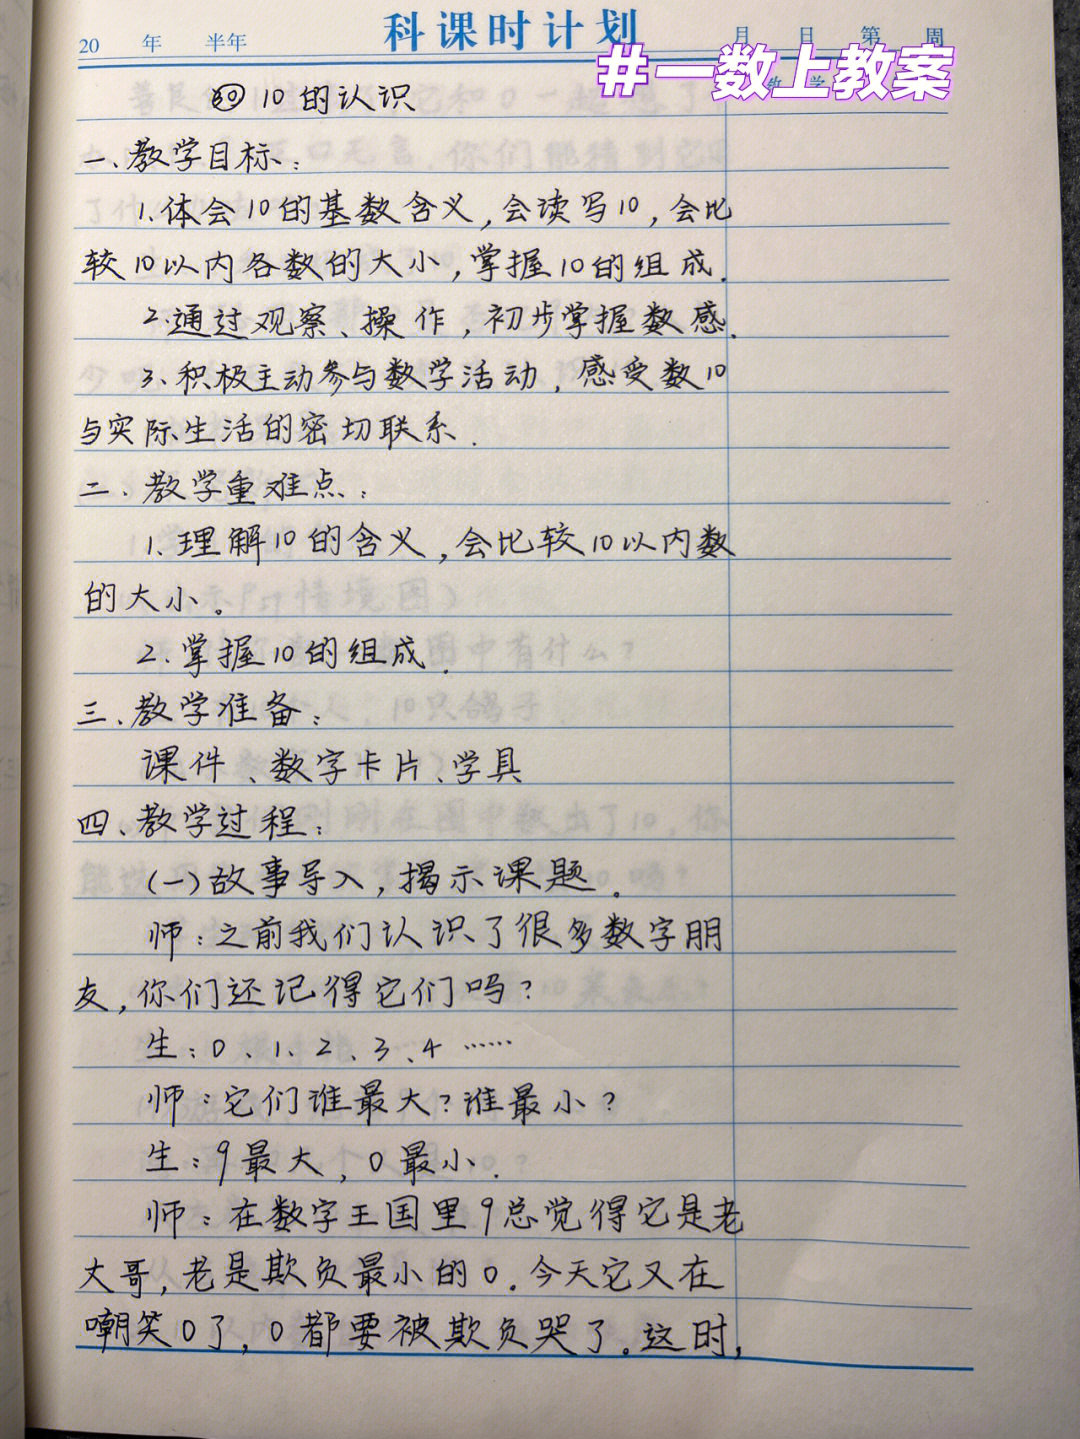 科课时计划
20 年 半年 月 日 第 周
#一数上教案
㉚ 10的认识
一、教学目标：
1.体会10的基数含义，会读写10，会比
较10以内各数的大小，掌握10的组成.
2.通过观察、操作，初步掌握数感.
3.积极主动参与数学活动，感受数10
与实际生活的密切联系.
二、教学重难点：
1.理解10的含义，会比较10以内数
的大小。
2.掌握10的组成.
三、教学准备：
课件、数字卡片、学具
四、教学过程：
(一)故事导入，揭示课题。
师：之前我们认识了很多数字朋
友，你们还记得它们吗？
生：0、1、2、3、4……
师：它们谁最大？谁最小？
生：9最大，0最小.
师：在数字王国里9总觉得它是老
大哥，老是欺负最小的0.今天它又在
嘲笑0了，0都要被欺负哭了。这时，